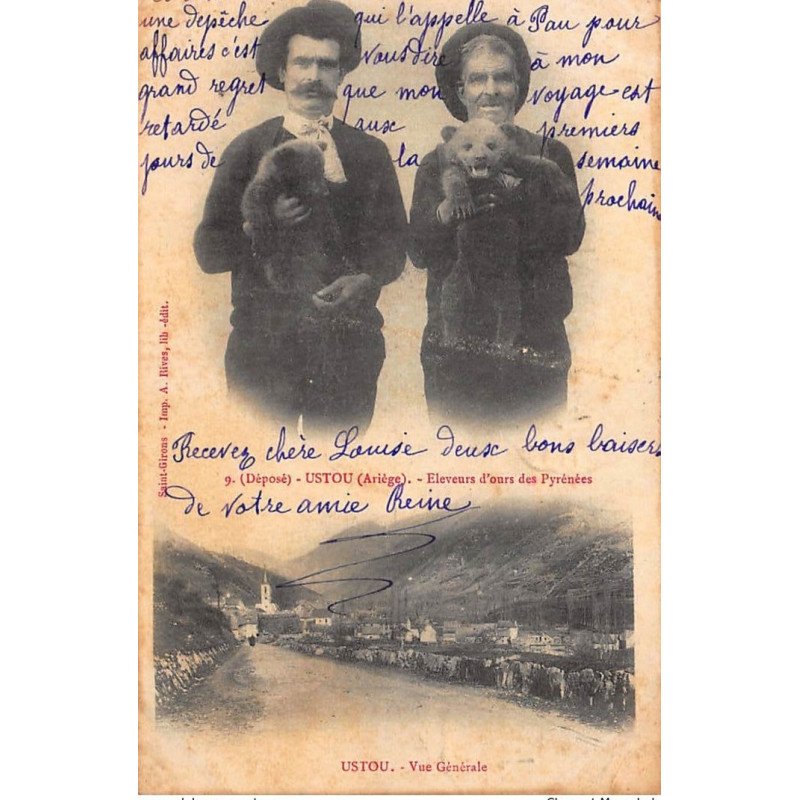 une depêche qui l'appelle à Pau pour
affaires c'est vous dire à mon
grand regret que mon voyage est
retardé aux premiers
jours de la semaine
prochain
Saint-Girons - Imp. A. Rives, lib -édit.
Recevez chère Louise deux bons baisers
9. (Déposé) - USTOU (Ariège). - Eleveurs d'ours des Pyrénées
de votre amie Reine
USTOU. - Vue Générale